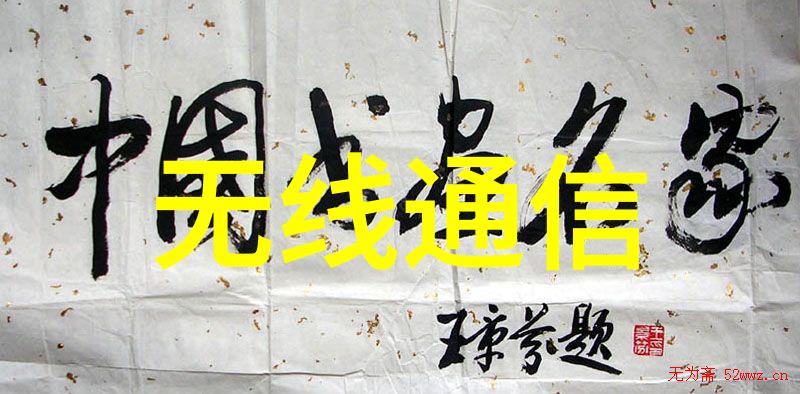 中国书画名家
无线通信
王京芬题
无为斋 52wwz.cn